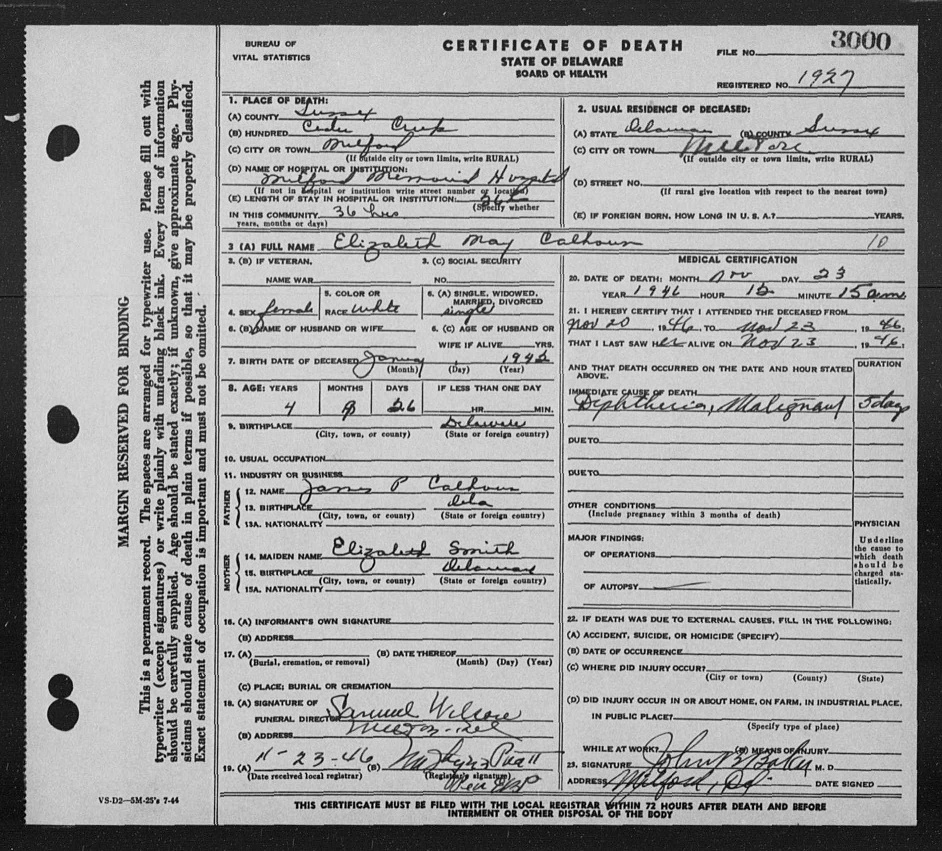 MARGIN RESERVED FOR BINDING
This is a permanent record. The spaces are arranged for typewriter use. Please fill out with
typewriter (except signatures) or write plainly with unfading black ink. Every item of information
should be carefully supplied. Age should be stated exactly; if unknown, give approximate age. Phy-
sicians should state cause of death in plain terms if possible, so that it may be properly classified.
Exact statement of occupation is important and must not be omitted.
VS-D2—5M-25's 7-44
BUREAU OF
VITAL STATISTICS
CERTIFICATE OF DEATH
STATE OF DELAWARE
BOARD OF HEALTH
FILE NO. 3000
REGISTERED NO. 1927
1. PLACE OF DEATH:
(A) COUNTY Sussex
(B) HUNDRED Cedar Creek
(C) CITY OR TOWN Milford
(If outside city or town limits, write RURAL)
(D) NAME OF HOSPITAL OR INSTITUTION:
Milford Memorial Hospital
(If not in hospital or institution write street number or location)
(E) LENGTH OF STAY IN HOSPITAL OR INSTITUTION: 36
(Specify whether
IN THIS COMMUNITY 36 hrs
years, months or days)
2. USUAL RESIDENCE OF DECEASED:
(A) STATE Delaware (B) COUNTY Sussex
(C) CITY OR TOWN
(If outside city or town limits, write RURAL)
(D) STREET NO.
(If rural give location with respect to the nearest town)
(E) IF FOREIGN BORN, HOW LONG IN U. S. A.? YEARS.
3 (A) FULL NAME Elizabeth May Calhoun 10
3. (B) IF VETERAN, 3. (C) SOCIAL SECURITY
NAME WAR NO.
4. SEX female 5. COLOR OR RACE White 6. (A) SINGLE, WIDOWED, MARRIED, DIVORCED single
6. (B) NAME OF HUSBAND OR WIFE 6. (C) AGE OF HUSBAND OR
WIFE IF ALIVE YRS.
7. BIRTH DATE OF DECEASED January 1942
(Month) (Day) (Year)
8. AGE: YEARS MONTHS DAYS IF LESS THAN ONE DAY
4 26 HR. MIN.
9. BIRTHPLACE Delaware
(City, town, or county) (State or foreign country)
10. USUAL OCCUPATION
11. INDUSTRY OR BUSINESS
FATHER
12. NAME James P Calhoun
13. BIRTHPLACE Dela
(City, town, or county) (State or foreign country)
13A. NATIONALITY
MOTHER
14. MAIDEN NAME Elizabeth Smith
15. BIRTHPLACE Delaware
(City, town, or county) (State or foreign country)
15A. NATIONALITY
16. (A) INFORMANT'S OWN SIGNATURE
(B) ADDRESS
17. (A) (B) DATE THEREOF
(Burial, cremation, or removal) (Month) (Day) (Year)
(C) PLACE; BURIAL OR CREMATION
18. (A) SIGNATURE OF
FUNERAL DIRECTOR Samuel Wilson
(B) ADDRESS
19. (A) 11-23-46 (B)
(Date received local registrar) (Registrar's signature)
MEDICAL CERTIFICATION
20. DATE OF DEATH: MONTH Nov DAY 23
YEAR 1946 HOUR 12 MINUTE 15 am
21. I HEREBY CERTIFY THAT I ATTENDED THE DECEASED FROM
Nov 20, 1946, TO Nov 23, 1946,
THAT I LAST SAW Her ALIVE ON Nov 23, 1946,
AND THAT DEATH OCCURRED ON THE DATE AND HOUR STATED
ABOVE.
DURATION
IMMEDIATE CAUSE OF DEATH
Diphtheria, Malignant 5 days
DUE TO
DUE TO
OTHER CONDITIONS
(Include pregnancy within 3 months of death)
MAJOR FINDINGS:
OF OPERATIONS
OF AUTOPSY
PHYSICIAN
Underline
the cause to
which death
should be
charged sta-
tistically.
22. IF DEATH WAS DUE TO EXTERNAL CAUSES, FILL IN THE FOLLOWING:
(A) ACCIDENT, SUICIDE, OR HOMICIDE (SPECIFY)
(B) DATE OF OCCURRENCE
(C) WHERE DID INJURY OCCUR?
(City or town) (County) (State)
(D) DID INJURY OCCUR IN OR ABOUT HOME, ON FARM, IN INDUSTRIAL PLACE,
IN PUBLIC PLACE?
(Specify type of place)
WHILE AT WORK? (E) MEANS OF INJURY
23. SIGNATURE John B Baker M. D.
ADDRESS Milford, Del DATE SIGNED
THIS CERTIFICATE MUST BE FILED WITH THE LOCAL REGISTRAR WITHIN 72 HOURS AFTER DEATH AND BEFORE
INTERMENT OR OTHER DISPOSAL OF THE BODY